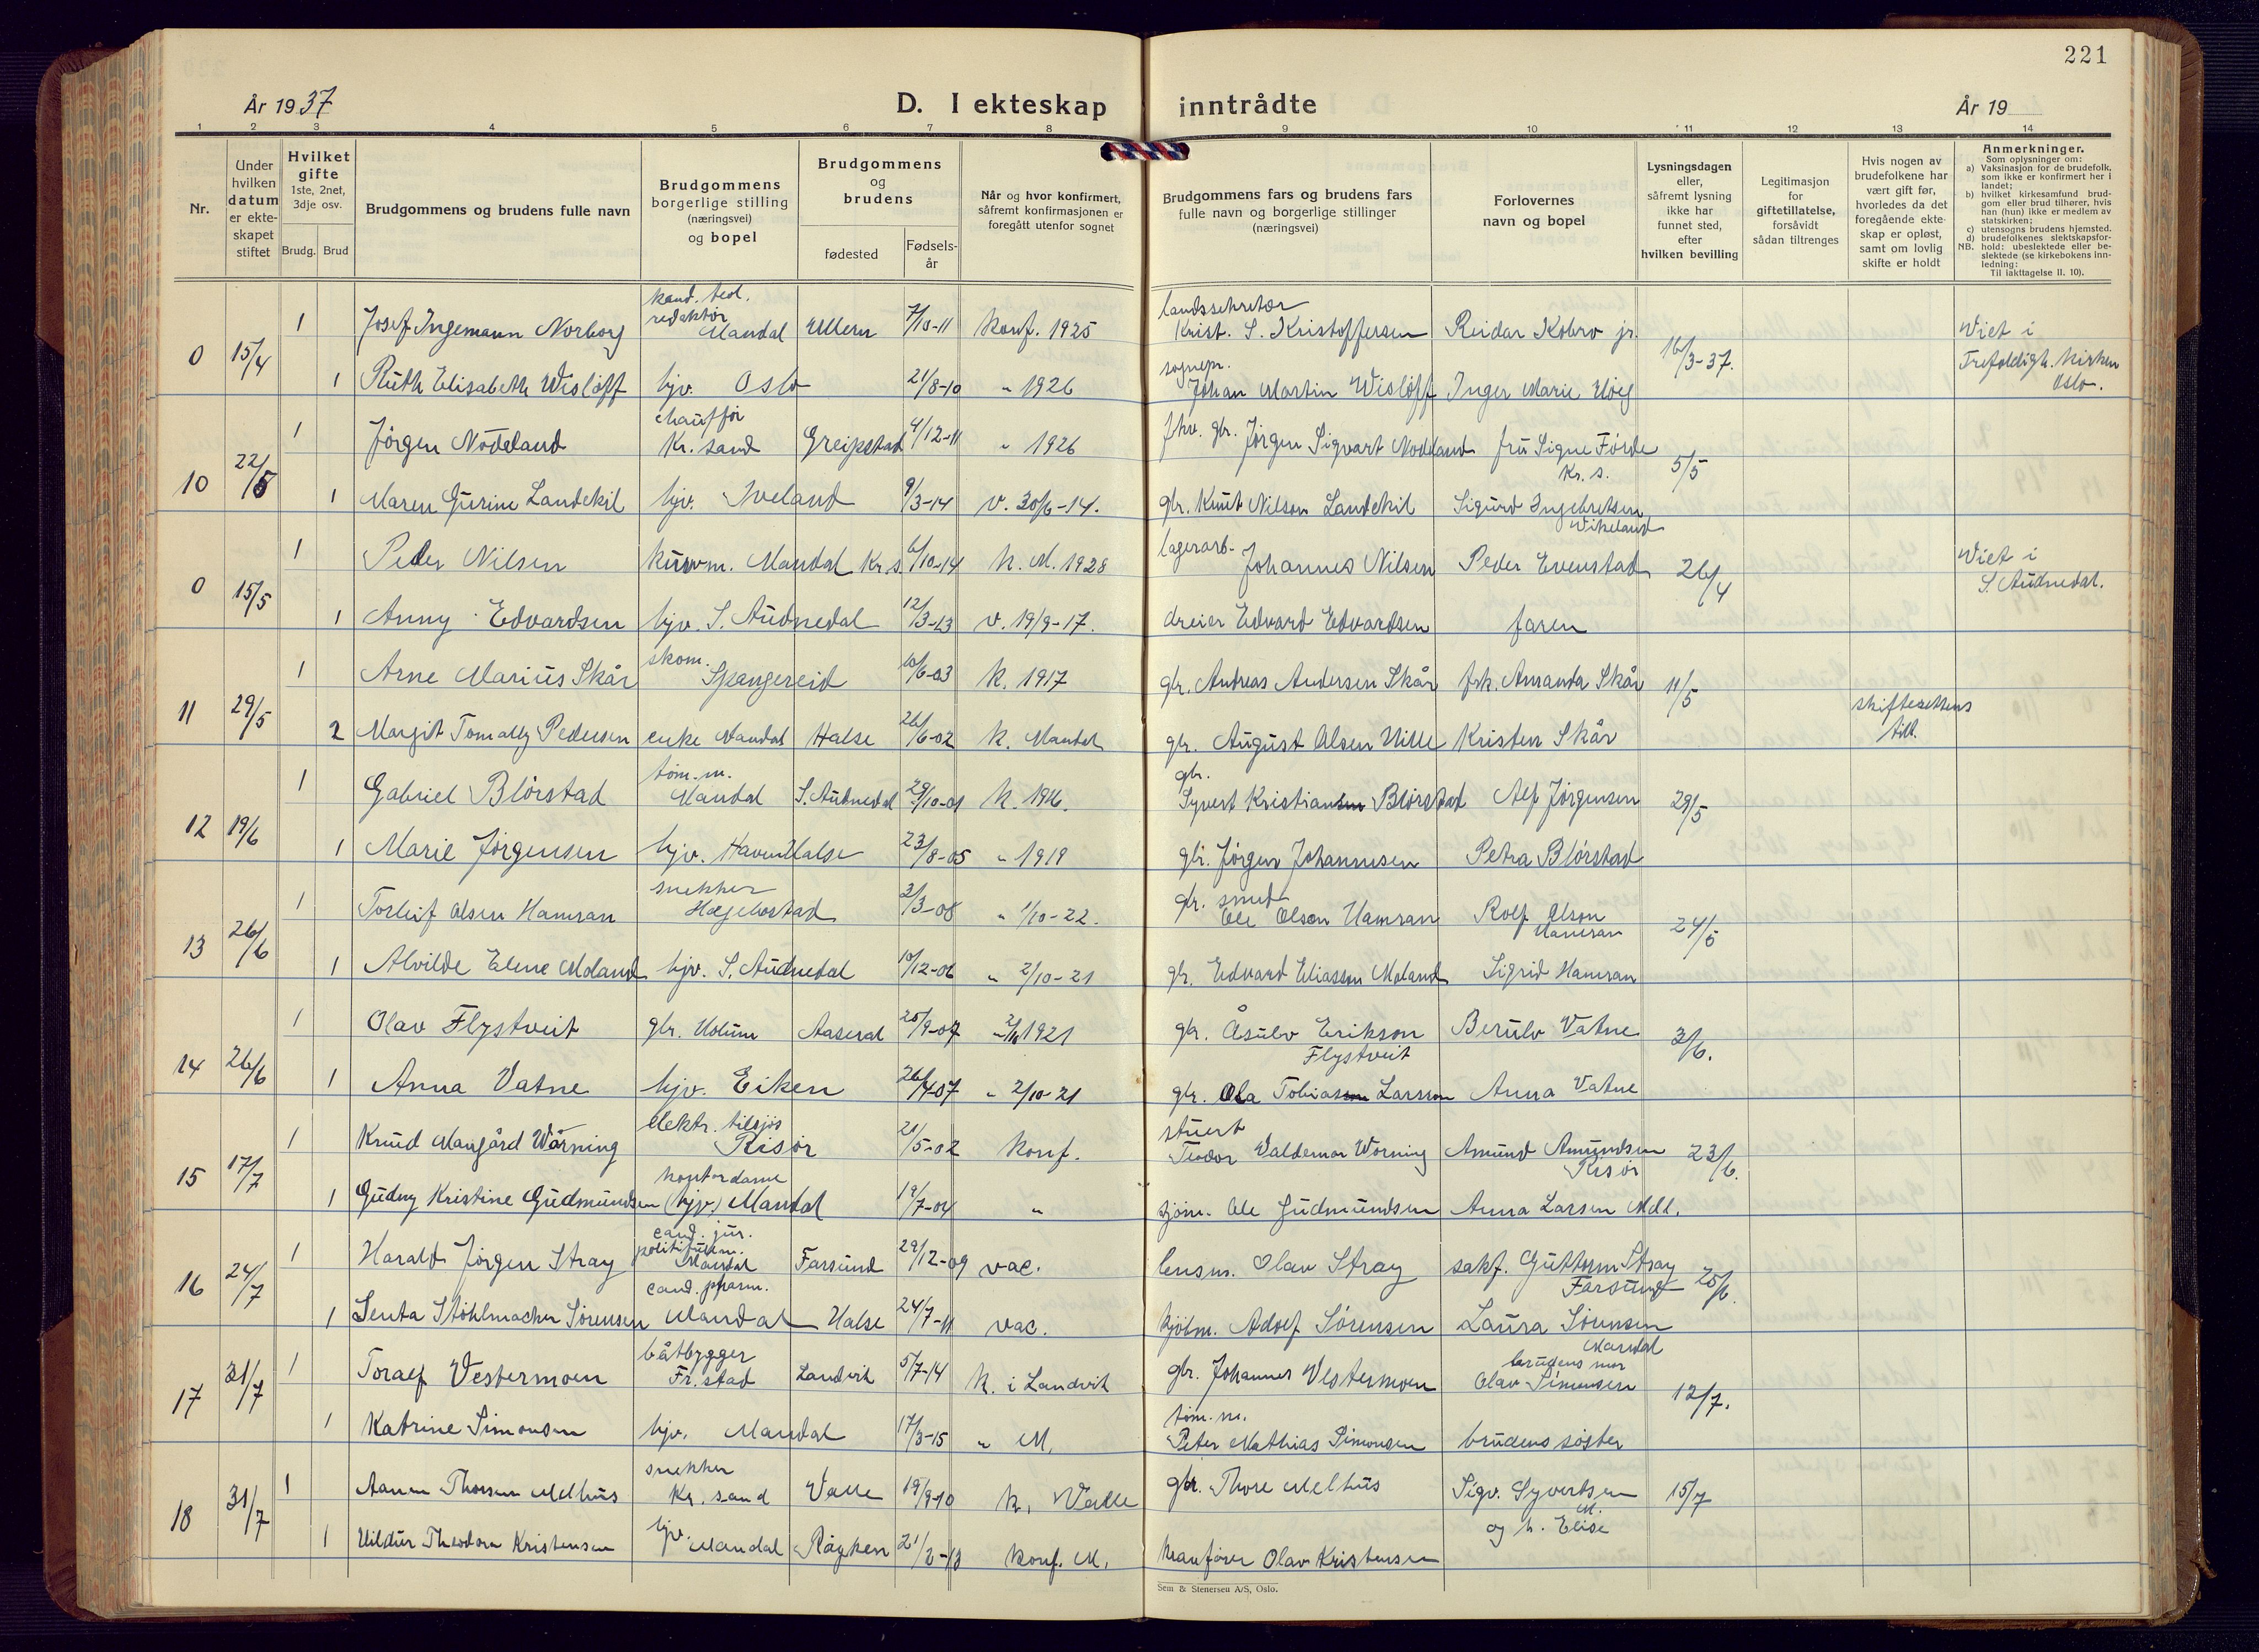 221
År 1937
D. I ekteskap
inntrådte
År 19
1 2 3 4 5 6 7 8 9 10 11 12 13 14
Nr.
Under
hvilken
datum
er ekte-
skapet
stiftet
Hvilket
gifte
1ste, 2net,
3dje osv.
Brudg. Brud
Brudgommens og brudens fulle navn
Brudgommens
borgerlige stilling
(næringsvei)
og bopel
Brudgommens
og
brudens
fødested
Fødsels-
år
Når og hvor konfirmert,
såfremt konfirmasjonen er
foregått utenfor sognet
Brudgommens fars og brudens fars
fulle navn og borgerlige stillinger
(næringsvei)
Forlovernes
navn og bopel
Lysningsdagen
eller,
såfremt lysning
ikke har
funnet sted,
efter
hvilken bevilling
Legitimasjon
for
giftetillatelse,
forsåvidt
sådan tiltrenges
Hvis nogen av
brudefolkene har
vært gift før,
hvorledes da det
foregående ekte-
skap er opløst,
samt om lovlig
skifte er holdt
Anmerkninger.
Som oplysninger om:
a) Vaksinasjon for de brudefolk,
som ikke er konfirmert her i
landet;
b) hvilket kirkesamfund brud-
gom eller brud tilhører, hvis
han (hun) ikke er medlem av
statskirken;
c) utensogns brudens hjemsted.
d) brudefolkenes slektskapsfor-
NB. hold: ubeslektede eller be-
slektede (se kirkebokens inn-
ledning:
Til iakttagelse II. 10).
kand. teol.
redaktør
landssekretær
1 Josef Ingemann Norborg Mandal Ullern 7/10-11 konf. 1925 Krist. S. Kristoffersen Reidar Kobro jr.
Viet i
0 15/4 16/3-37. Trefoldigh. kirken
Oslo.
sognepr.
1 Ruth Elisabeth Wisløff hjv. Oslo 21/8-10 " 1926 Johan Martin Wisløff Inger Marie Høeg
chauffør
1 Jørgen Nodeland Kr.sand Greipstad 4/12-11 " 1926 fhv. gbr. Jørgen Sigvart Nodeland fru Signe Førde
Kr. s.
10 22/5 5/5
1 Maren Gurine Landekil hjv. Iveland 9/3-14 v. 30/6-14. gbr. Knut Nilson Landekil Sigurd Ingebretsen
Vikeland
lagerarb.
1 Peder Nilsen kurvm. Mandal Kr.s. 6/10-14 k. M. 1928 Johannes Nilsen Peder Evenstad
Viet i
0 15/5 26/4 S. Audnedal.
1 Anny Edvardsen hjv. S. Audnedal 12/3-13 v. 19/9-17. dreier Edvard Edvardsen faren
skom.
1 Arne Marius Skår Spangereid 10/6-03 k. 1917 gbr. Andreas Andersen Skår frk. Amanda Skår
11 29/5 11/5 skifterettens
till.
2 Margit Tomally Pedersen enke Mandal Halse 26/6-02 k. Mandal gbr. August Olsen Hille Kristen Skår
tøm.m.
gbr.
1 Gabriel Blørstad Mandal S. Audnedal 29/10-01 k. 1916. Syvert Kristiansen Blørstad Alf Jørgensen
12 19/6 29/5
1 Marie Jørgensen hjv. Haven Halse 23/8-05 " 1919 gbr. Jørgen Johannesen Petra Blørstad
snekker
gbr. smed
1 Torleif Olsen Hamran Hægebostad 2/3-08 " 1/10-22. Ole Olsen Hamran Rolf Olson
Hamran
13 26/6 24/5
1 Alvilde Elene Moland hjv. S. Audnedal 10/12-06 " 2/10-21 gbr. Edvard Eliassen Moland Sigrid Hamran
1 Olav Flystveit gbr. Holum Aaseral 25/9-07 " 1921 gbr. Åsulv Erikson Berulv Vatne
Flystveit
14 26/6 3/6.
1 Anna Vatne hjv. Eiken 26/4-07 " 2/10-21 gbr. Ola Tobiasson Larsson Anna Vatne
elektr. tilsjøs
stuert
1 Knud Mangård Warning Risør 21/5-02 konf. Teodor Valdemar Worning Amund Amundsen
Risør
15 17/7 23/6.
kontordame
1 Gudny Kristine Gudmundsen (hjv.) Mandal 19/7-04 " sjøm. Ole Gudmundsen Anna Larsen Mdl.
cand. jur.
politifullm.
1 Harald Jørgen Stray Mandal Farsund 29/12-09 vac. lensm. Olav Stray sakf. Guttorm Stray
Farsund
16 24/7 25/6.
cand. pharm.
1 Senta Stöhlmacher Sørensen Mandal Halse 24/7-11 vac. kjøbm. Adolf Sørensen Laura Sørensen
Mandal
båtbygger
brudens mor
1 Toralf Vestermoen Fr.stad Landvik 5/7-14 k. i Landvik gbr. Johannes Vestermoen Olav Simonsen
17 31/7 12/7.
tøm.m.
1 Katrine Simonsen hjv. Mandal 17/3-15 " M. Peter Mathias Simonsen brudens søster
snekker
1 Aanen Thorsen Melhus Kr.sand Valle 19/9-10 k. Valle gbr. Thore Melhus Sigv. Syvertsen
M.
18 31/7 15/7
og h. Elise
1 Hildur Theodora Kristensen hjv. Mandal Røyken 21/2-13 konf. M. Olav Kristensen
Sem & Stenersen A/S, Oslo.